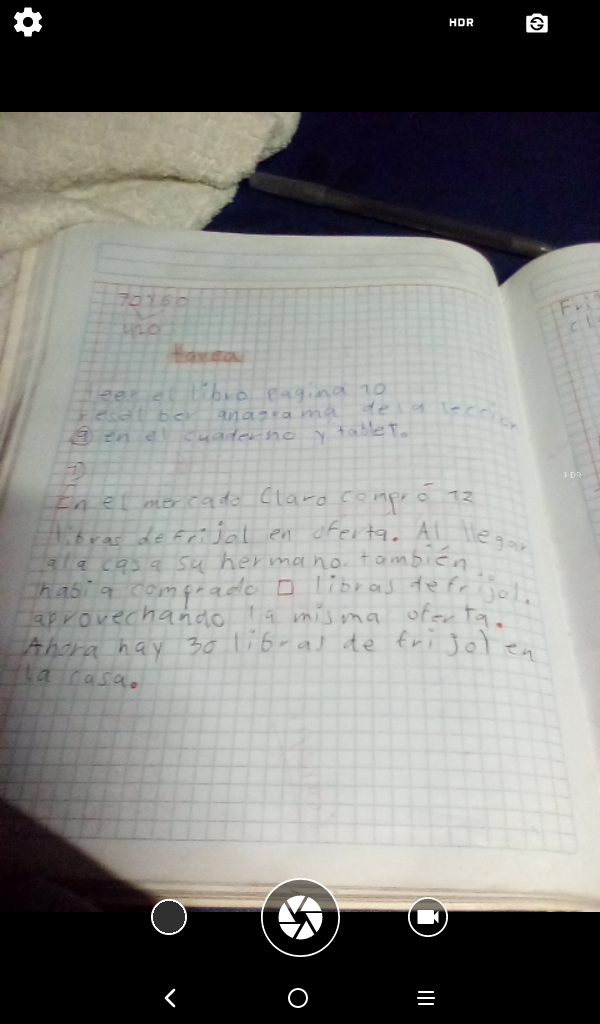 HDR
70x60
420
tarea
Leer el libro pagina 10
resol ber anagrama dela leccion
9 en el cuaderno y tablet.
1)
En el mercado Claro compró 12
libras de frijol en oferta. Al llegar
ala casa su hermano. también
habia comprado □ libras de frijol.
aprovechando la misma oferta.
Ahora hay 30 libras de frijol en
la casa.
HDR